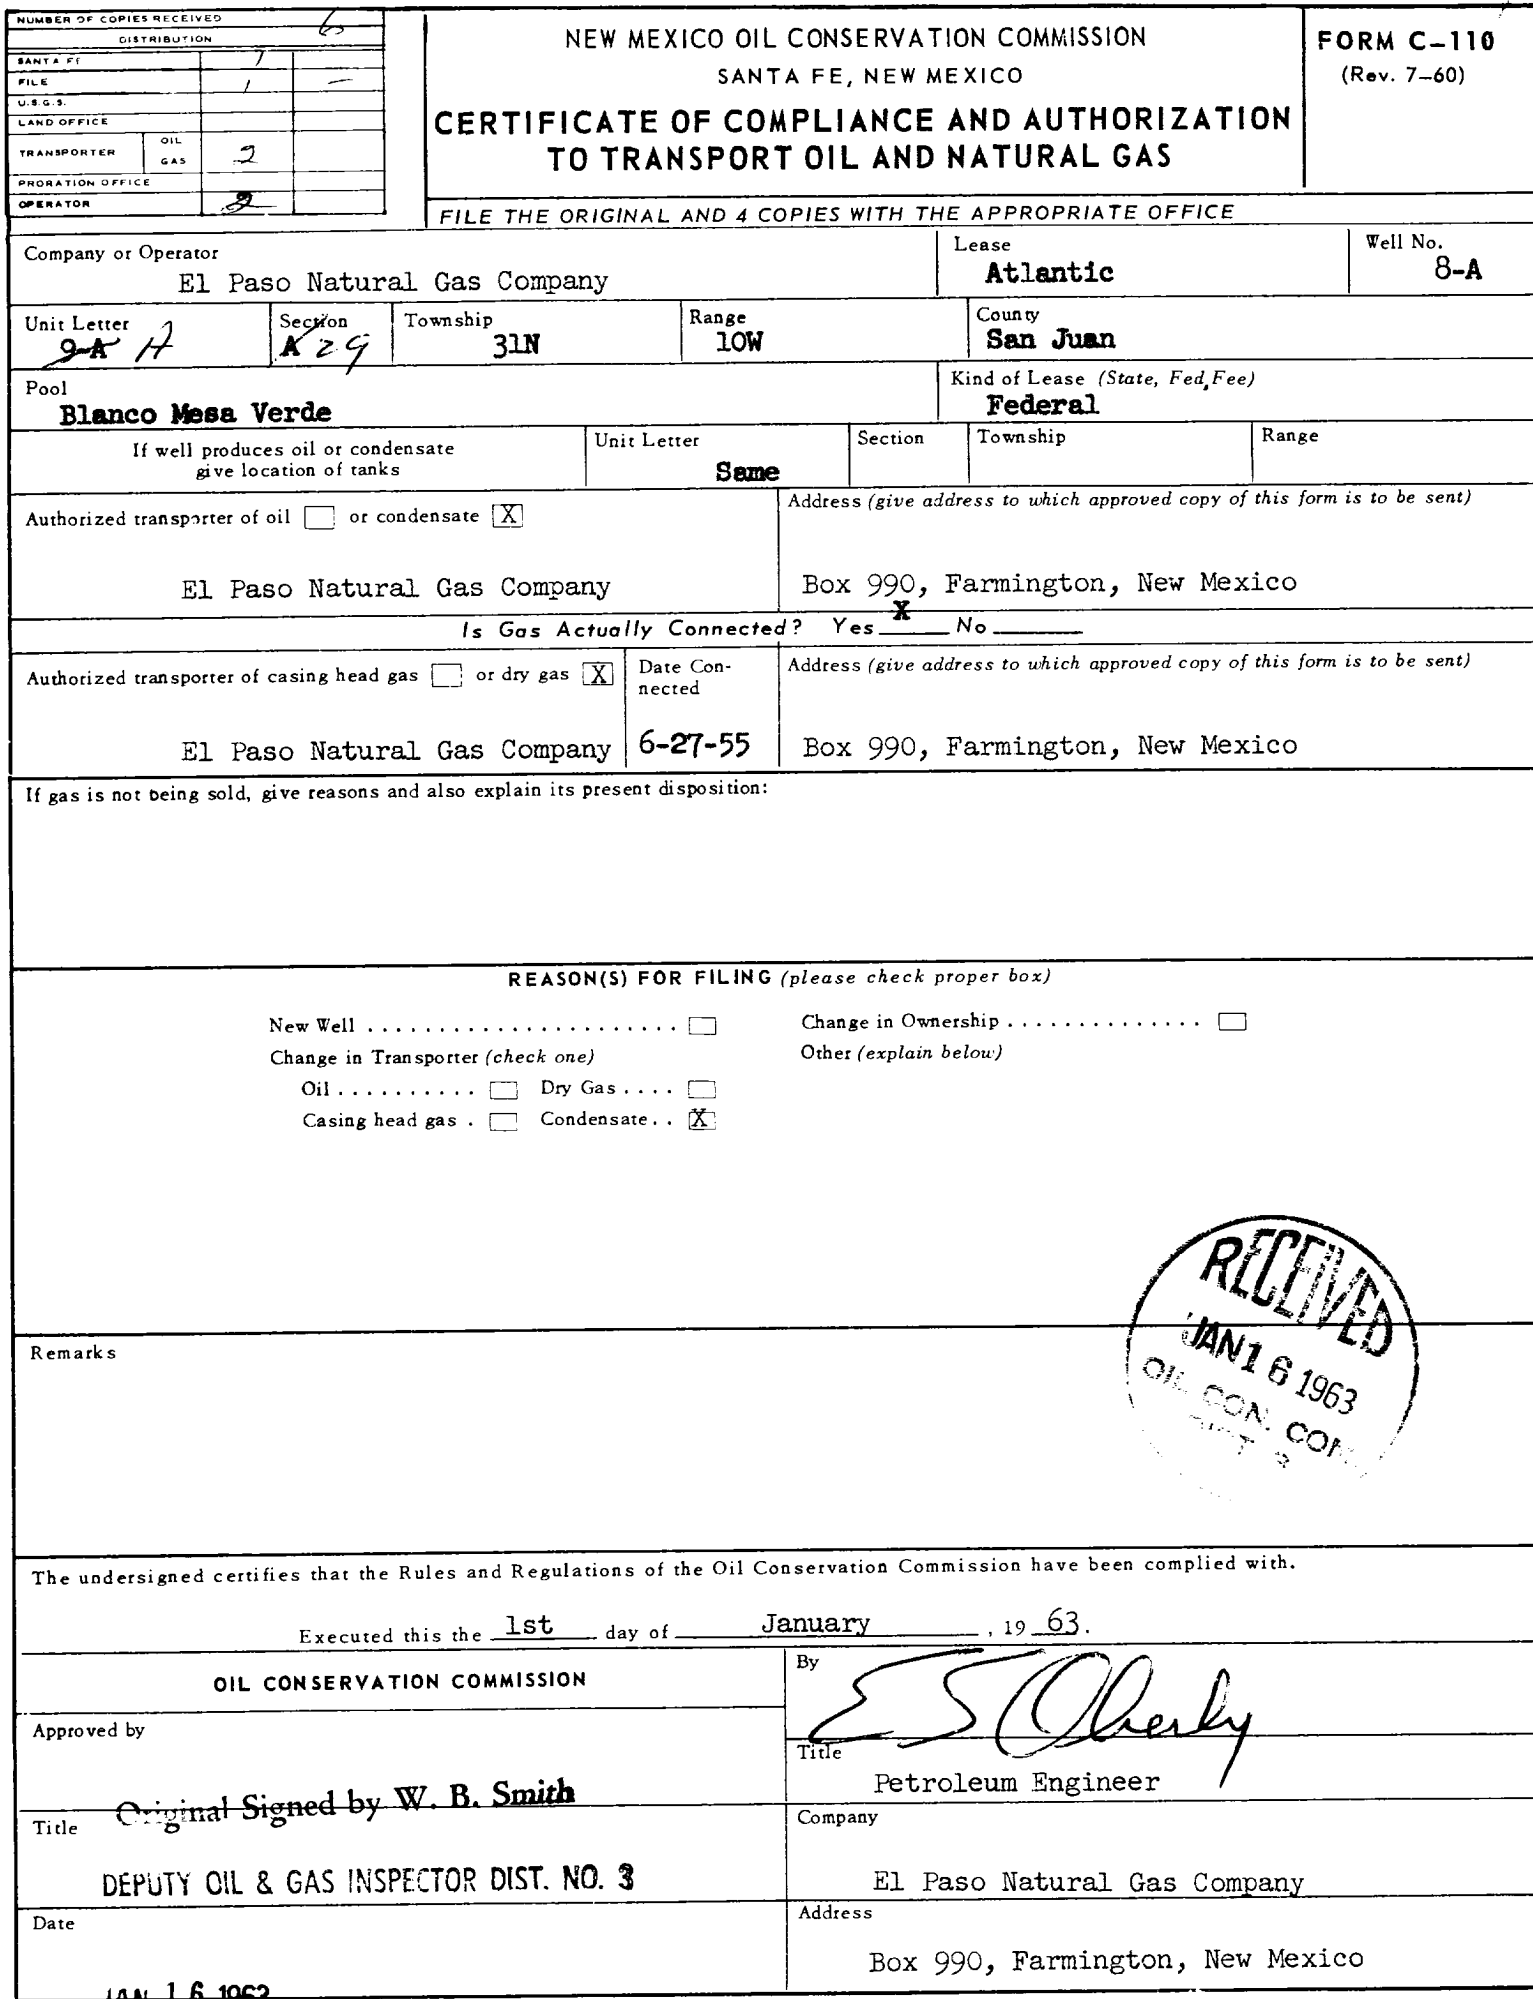 NUMBER OF COPIES RECEIVED 6
DISTRIBUTION
SANTA FE 1
FILE 1 -
U.S.G.S.
LAND OFFICE
TRANSPORTER OIL
GAS 2
PRORATION OFFICE
OPERATOR 2
NEW MEXICO OIL CONSERVATION COMMISSION
SANTA FE, NEW MEXICO
CERTIFICATE OF COMPLIANCE AND AUTHORIZATION
TO TRANSPORT OIL AND NATURAL GAS
FILE THE ORIGINAL AND 4 COPIES WITH THE APPROPRIATE OFFICE
FORM C-110
(Rev. 7-60)
Company or Operator
El Paso Natural Gas Company
Lease
Atlantic
Well No.
8-A
Unit Letter
9-A A
Section
A 29
Township
31N
Range
10W
County
San Juan
Pool
Blanco Mesa Verde
Kind of Lease (State, Fed, Fee)
Federal
If well produces oil or condensate
give location of tanks
Unit Letter
Same
Section
Township
Range
Authorized transporter of oil or condensate X
El Paso Natural Gas Company
Address (give address to which approved copy of this form is to be sent)
Box 990, Farmington, New Mexico
Is Gas Actually Connected? Yes X No
Authorized transporter of casing head gas or dry gas X
El Paso Natural Gas Company
Date Con-
nected
6-27-55
Address (give address to which approved copy of this form is to be sent)
Box 990, Farmington, New Mexico
If gas is not being sold, give reasons and also explain its present disposition:
REASON(S) FOR FILING (please check proper box)
New Well . . . . . . . . . . . . . . . . . . . . . .
Change in Ownership . . . . . . . . . . . . . .
Change in Transporter (check one)
Other (explain below)
Oil . . . . . . . . . . Dry Gas . . . .
Casing head gas . Condensate . . X
RECEIVED
JAN 16 1963
OIL CON. COM.
DIST. 3
Remarks
The undersigned certifies that the Rules and Regulations of the Oil Conservation Commission have been complied with.
Executed this the 1st day of January , 19 63.
OIL CONSERVATION COMMISSION
Approved by
Original Signed by W. B. Smith
Title
DEPUTY OIL & GAS INSPECTOR DIST. NO. 3
Date
JAN 16 1963
By
E S Oberly
Title
Petroleum Engineer
Company
El Paso Natural Gas Company
Address
Box 990, Farmington, New Mexico